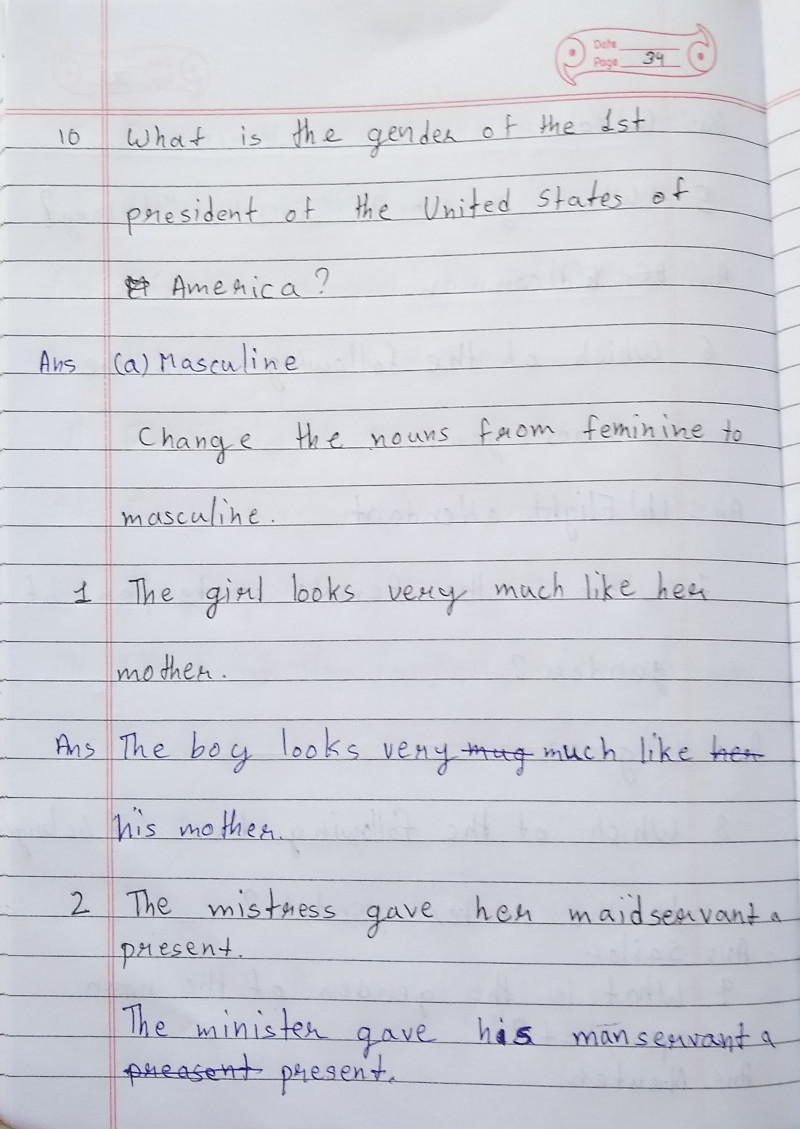 Date
Page 34
10 What is the gender of the 1st
president of the United States of
America?
Ans (a) Masculine
Change the nouns from feminine to
masculine.
1 The girl looks very much like her
mother.
Ans The boy looks very mug much like her
his mother.
2 The mistress gave her maidservant a
present.
The minister gave his manservant a
preasent present.